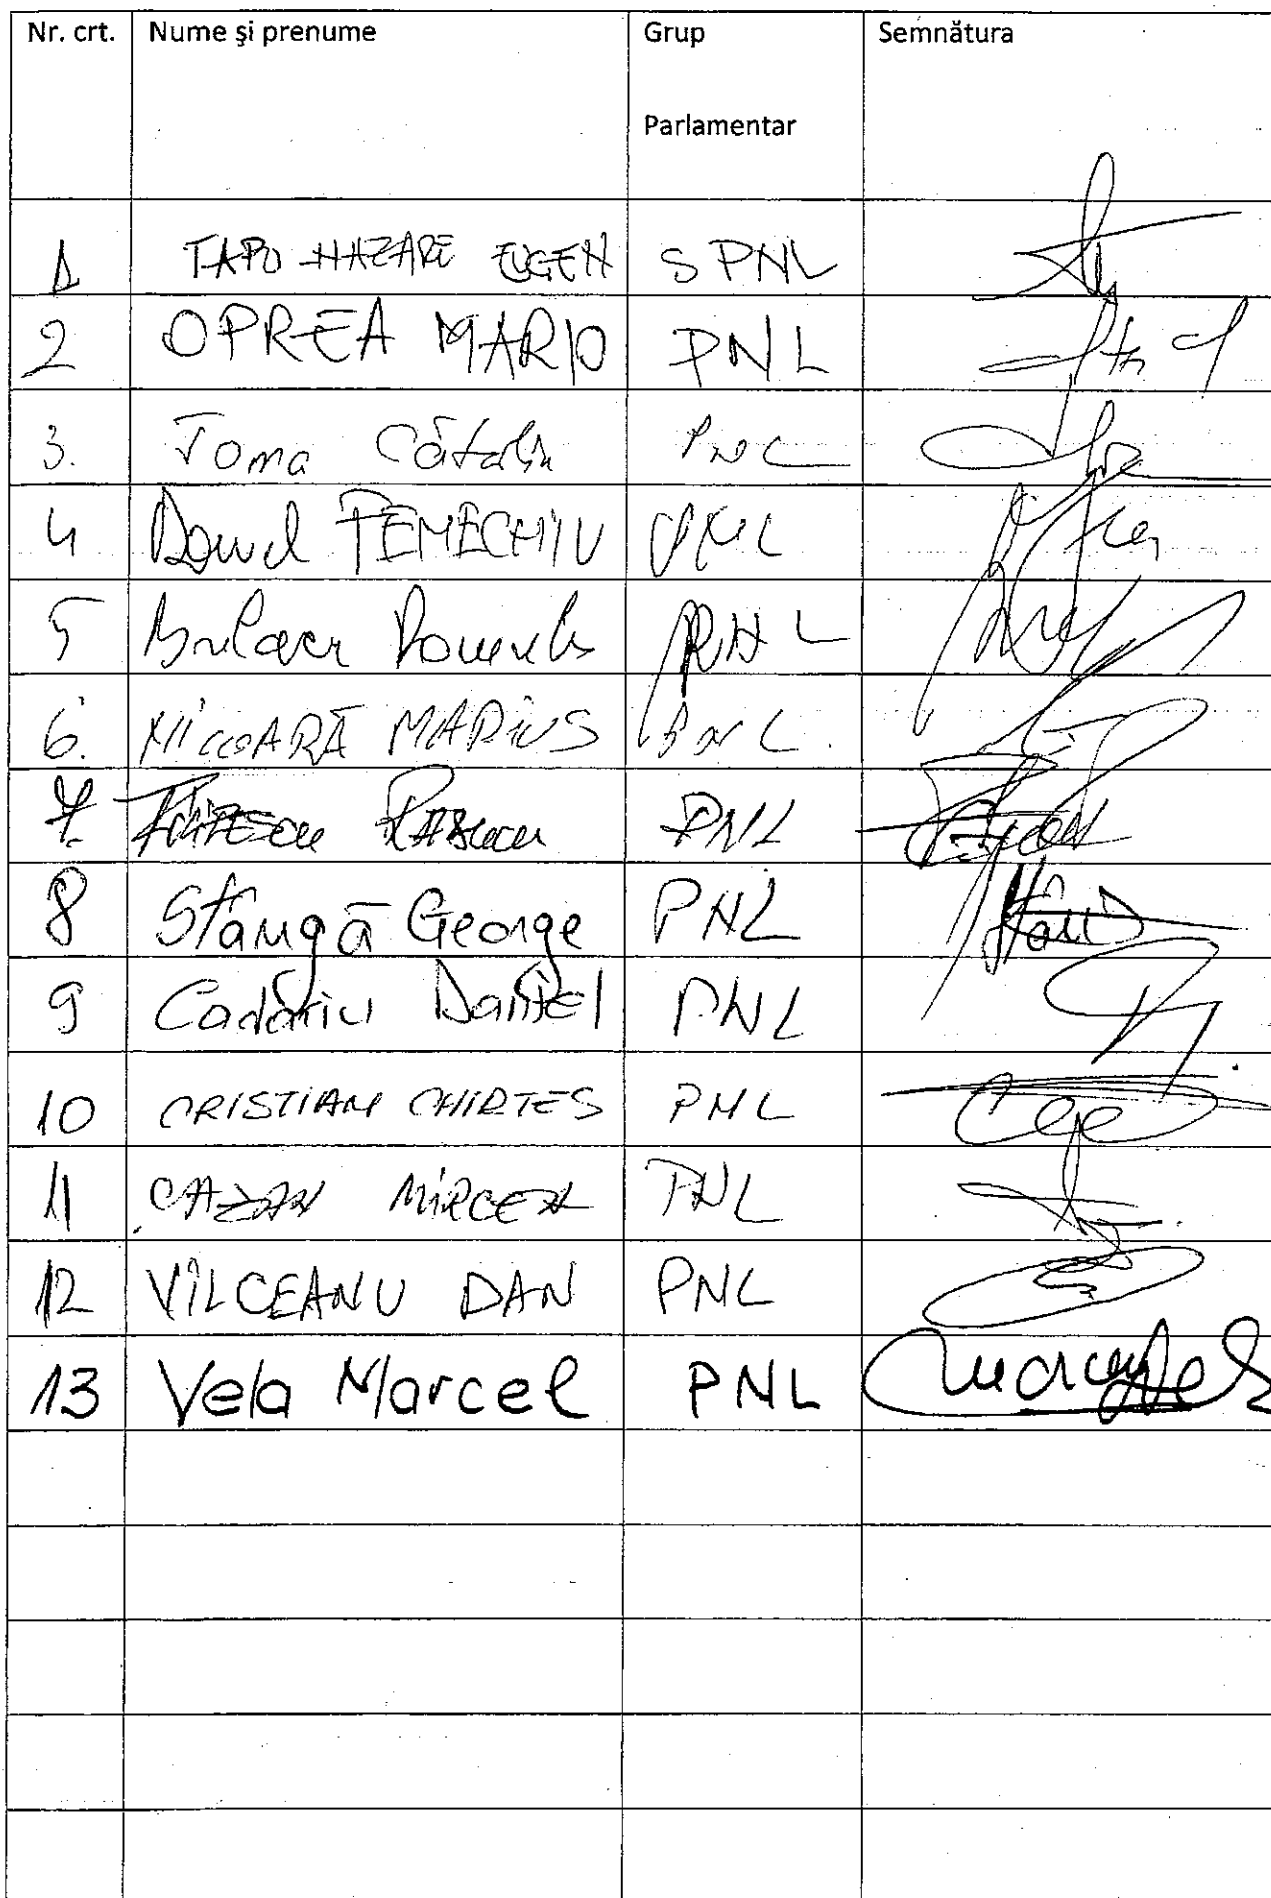 Nr. crt. Nume și prenume Grup Parlamentar Semnătura
1 EUGEN S PNL
2 OPREA MARIO PNL
3. Toma Cătălin PNL
4 PNL
5 PNL
6. MARIUS PNL
7. PNL
8 Stângă George PNL
9 Cadariu Daniel PNL
10 CRISTIAN CHIRTES PNL
11 CAZAN MIRCEA PNL
12 VÎLCEANU DAN PNL
13 Vela Marcel PNL